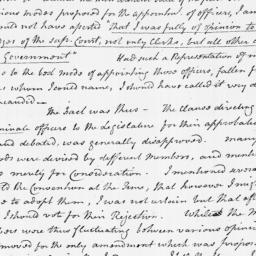 various modes proposed for the appointmt. of officers, I am
ould not have asserted "that I was fully of opinion to
dges of the sup. Court, not only Clerks, but all other o
Government"    Had such a Representation of m
to the bad mode of appointing these officers, fallen f
whom I could name, I should have called it very d
The Fact was thus — The clause directing
minate officers to the Legislature for their approbat
debated, was generally disapproved. many
ods were devised by different Members, and ment
merely for Consideration. I mentioned several
to the Convention at the Time, that however I mig
to adopt them, I was not certain but that aft
I should vote for their Rejection. While the M
bers were thus fluctuating between various opinio
moved for the only amendment which was propos